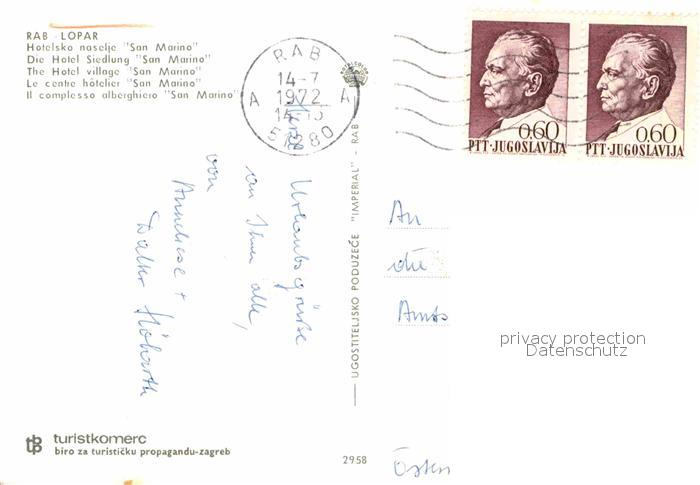 RAB - LOPAR
Hotelsko naselje "San Marino"
Die Hotel Siedlung "San Marino"
The Hotel village "San Marino"
Le centre hôtelier "San Marino"
Il complesso alberghiero "San Marino"
RAB
14-7
A 1972 A
51280
0.60
PTT·JUGOSLAVIJA
0.60
PTT·JUGOSLAVIJA
Urlaubsgrüße
an Ihnen alle,
von
Anneliese +
UGOSTITELJSKO PODUZEĆE "IMPERIAL" - RAB
An
die
Amts
privacy protection
Datenschutz
Österr
tb turistkomerc
biro za turističku propagandu-zagreb
2958